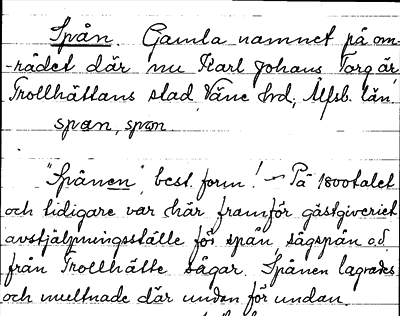 Spån. Gamla namnet på om-
-rådet där nu Karl Johans Torg är,
Trollhättans stad, Väne hrd, Älfsb. län.
spøn, spøn.
"Spånen", best. form! – På 1800talet
och tidigare var här framför gästgiveriet
avstjälpningsställe för spån, sågspån o.d.
från Trollhätte sågar. Spånen lagrades
och multnade där undan för undan.